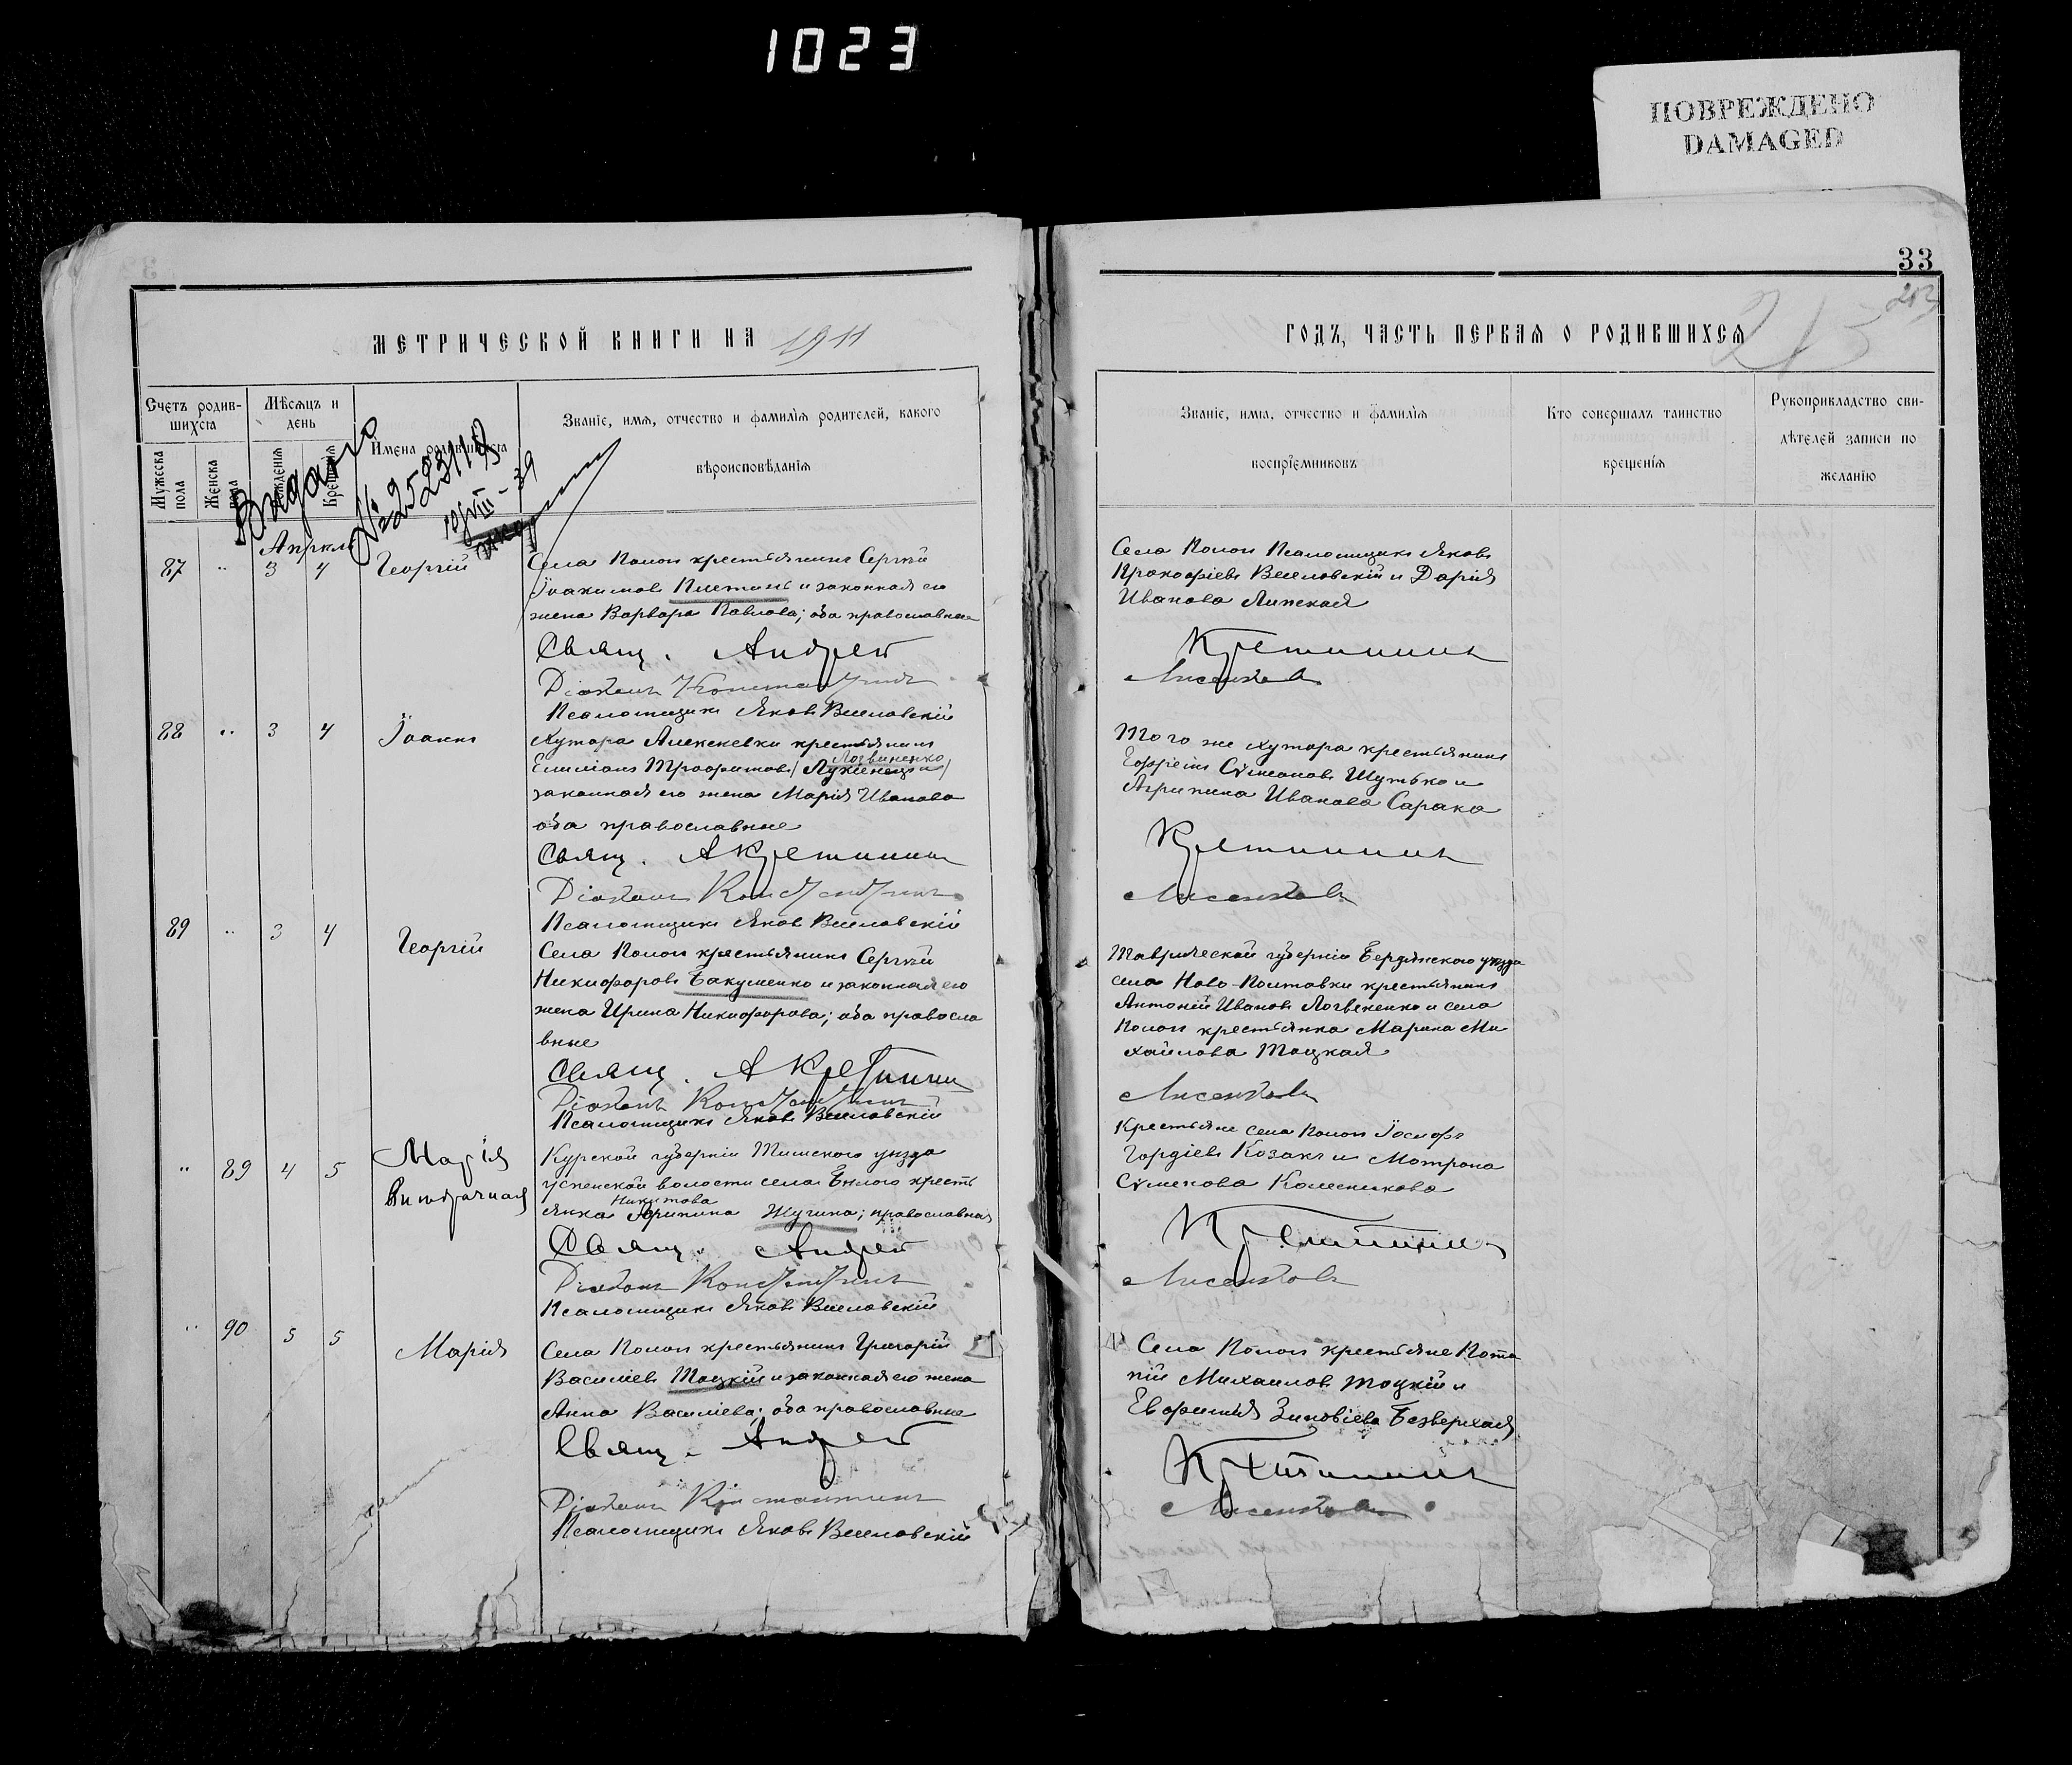 1023
ПОВРЕЖДЕНО
DAMAGED
33
213
213
МЕТРИЧЕСКОЙ КНИГИ НА 1911
ГОДЪ, ЧАСТЬ ПЕРВАЯ О РОДИВШИХСЯ
Счетъ родив-
шихся
Мужеска пола
Женска пола
Мѣсяцъ и
день
Рожденія
Крещенія
Имена родившихся
Званіе, имя, отчество и фамилія родителей, какого
вѣроисповѣданія
Званіе, имя, отчество и фамилія
воспріемниковъ
Кто совершалъ таинство
крещенія
Рукоприкладство сви-
дѣтелей записи по
желанію
Видано
10/VIII-39
Апрѣль
87 " 3 4 Георгій
Села Пологи крестьянинъ Сергѣй
Іоакимовъ Плетинь и законная его
жена Варвара Павлова; оба православные
Свящ. Андрей
Діаконъ Константинъ
Псаломщикъ Яковъ Веселовскій
Села Пологи Псаломщикъ Яковъ
Прокофіевъ Веселовскій и Дарія
Иванова Липская
Кретининъ
Лисенковъ
88 " 3 4 Іоаннъ
Хутора Алексеевки крестьянинъ
Логвиненко
Емиліанъ Трофимовъ /Лукінецъ и/
законная его жена Марія Иванова
оба православные
Свящ. А Кретининъ
Діаконъ Константинъ
Псаломщикъ Яковъ Веселовскій
Того же хутора крестьянинъ
Ефремъ Сѵмеоновъ Шутько и
Агрипина Иванова Сарана
Кретининъ
Лисенковъ
89 " 3 4 Георгій
Села Пологи крестьянинъ Сергѣй
Никифоровъ Бакуменко и законная его
жена Ирина Никифорова; оба правосла
вные
Свящ. А Кретининъ
Діаконъ Константинъ
Псаломщикъ Яковъ Веселовскій
Таврической губерніи Бердянского уѣзда
села Ново-Полтавки крестьянинъ
Антоній Ивановъ Логвененко и села
Пологи крестьянка Марина Ми
хайлова Тоцкая
Лисенковъ
" 89 4 5 Марія
Внибрачная
Курской губерніи Тимского уѣзда
Успенской волости села Бѣлого кресть
Никитова
янка Агрипина Жугина; православная
Свящ. Андрей
Діаконъ Константинъ
Псаломщикъ Яковъ Веселовскій
Крестьяне села Пологи Іосифъ
Гордіевъ Козакъ и Матрона
Сѵменова Колесникова
Кретининъ
Лисенковъ
" 90 5 5 Марія
Села Пологи крестьянинъ Григорій
Василіевъ Тоцкій и законная его жена
Анна Василіева; оба православные
Свящ. Андрей
Діаконъ Константинъ
Псаломщикъ Яковъ Веселовскій
Села Пологи крестьяне Пота
пій Михаиловъ Тоцкій и
Евфимія Зиновіева Безверхая
Кретининъ
Лисенковъ